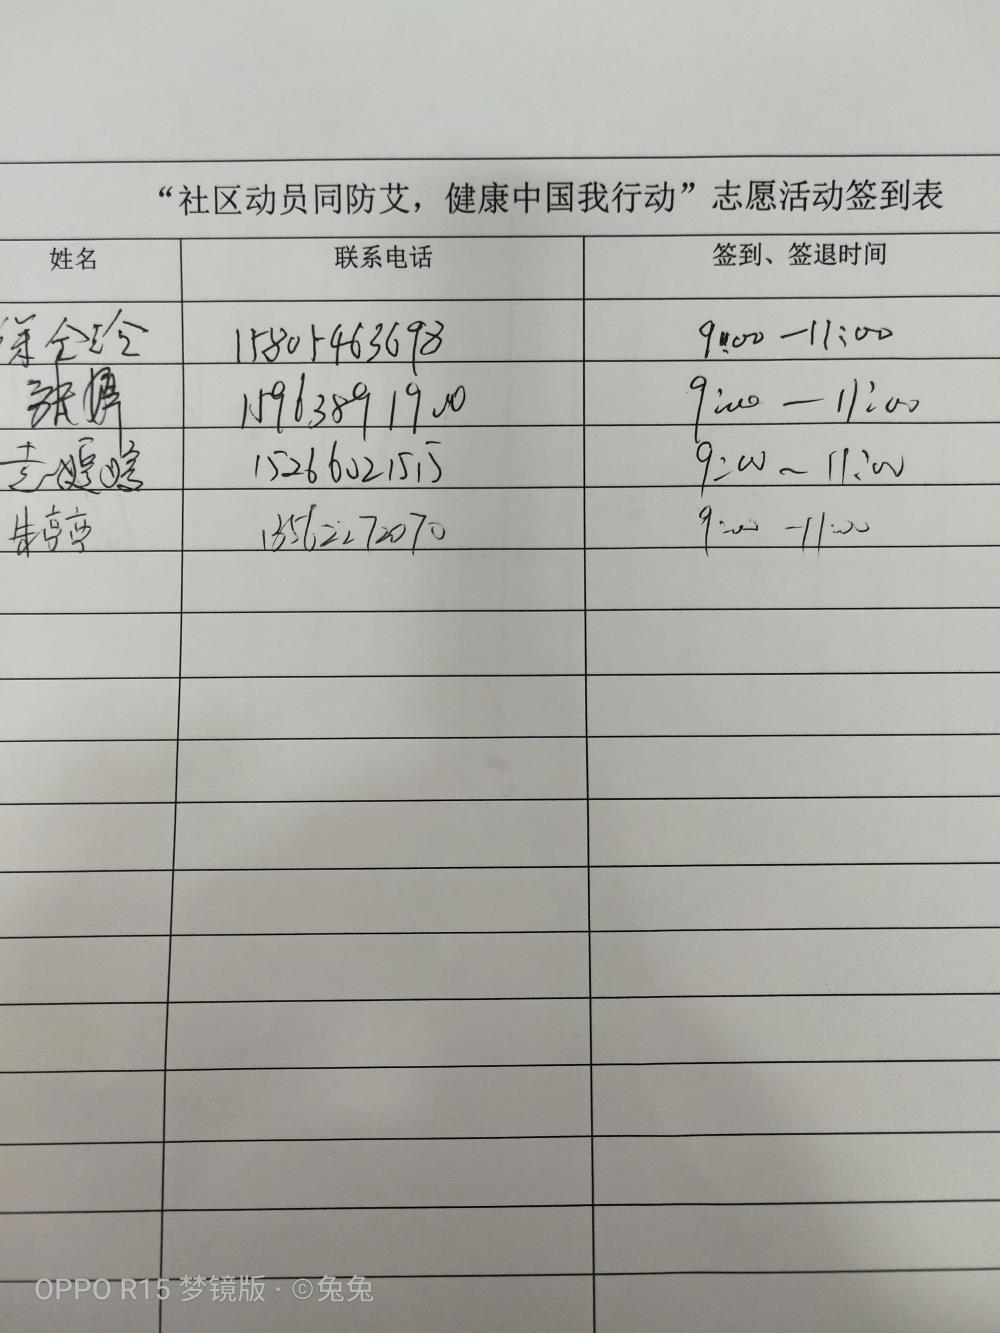 “社区动员同防艾，健康中国我行动”志愿活动签到表
姓名 联系电话 签到、签退时间
15805463698 9:00-11:00
张 15963891900 9:00-11:00
15266021515 9:00~11:00
朱亭亭 13562272070 9:00-11:00
OPPO R15 梦镜版·©兔兔